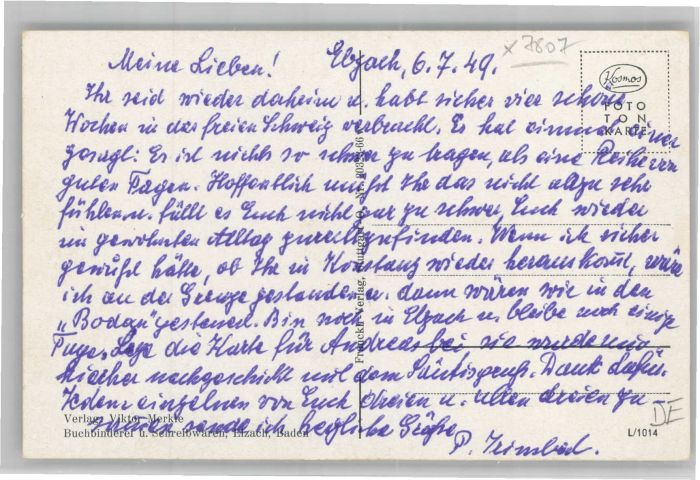 x 7807
Meine Lieben! Elzach, 6.7.49.
Kosmos
FOTO
TON
KARTE
Ihr seid wieder daheim u. habt sicher vier schöne
Wochen in der freien Schweiz verbracht. Es hat einmal einer
gesagt: Es ist nichts so schwer zu tragen, als eine Reihe von
guten Tagen. Hoffentlich müsst Ihr das nicht allzu sehr
fühlen u. fällt es Euch nicht gar zu schwer, Euch wieder
im gewohnten Alltag zurechtzufinden. Wenn ich sicher
gewußt hätte, ob Ihr in Konstanz wieder herauskomt, wäre
ich an der Grenze gestanden u. dann wären wir in den
„Bodan" gesteuert. Bin noch in Elzach u. bleibe noch einige
Tage. Lege die Karte für Andreas bei sie wurde mir
hierher nachgeschickt mit dem Säntisgruß. Dank dafür.
Jedem einzelnen von Euch dreien u. allen dreien zu-
sammen sende ich herzliche Grüße
P. Trimbod.
Franckh-Verlag, Stuttgart-O.
Verlag: Viktor Merkle
Buchbinderei u. Schreibwaren, Elzach, Baden
L/1014
DE